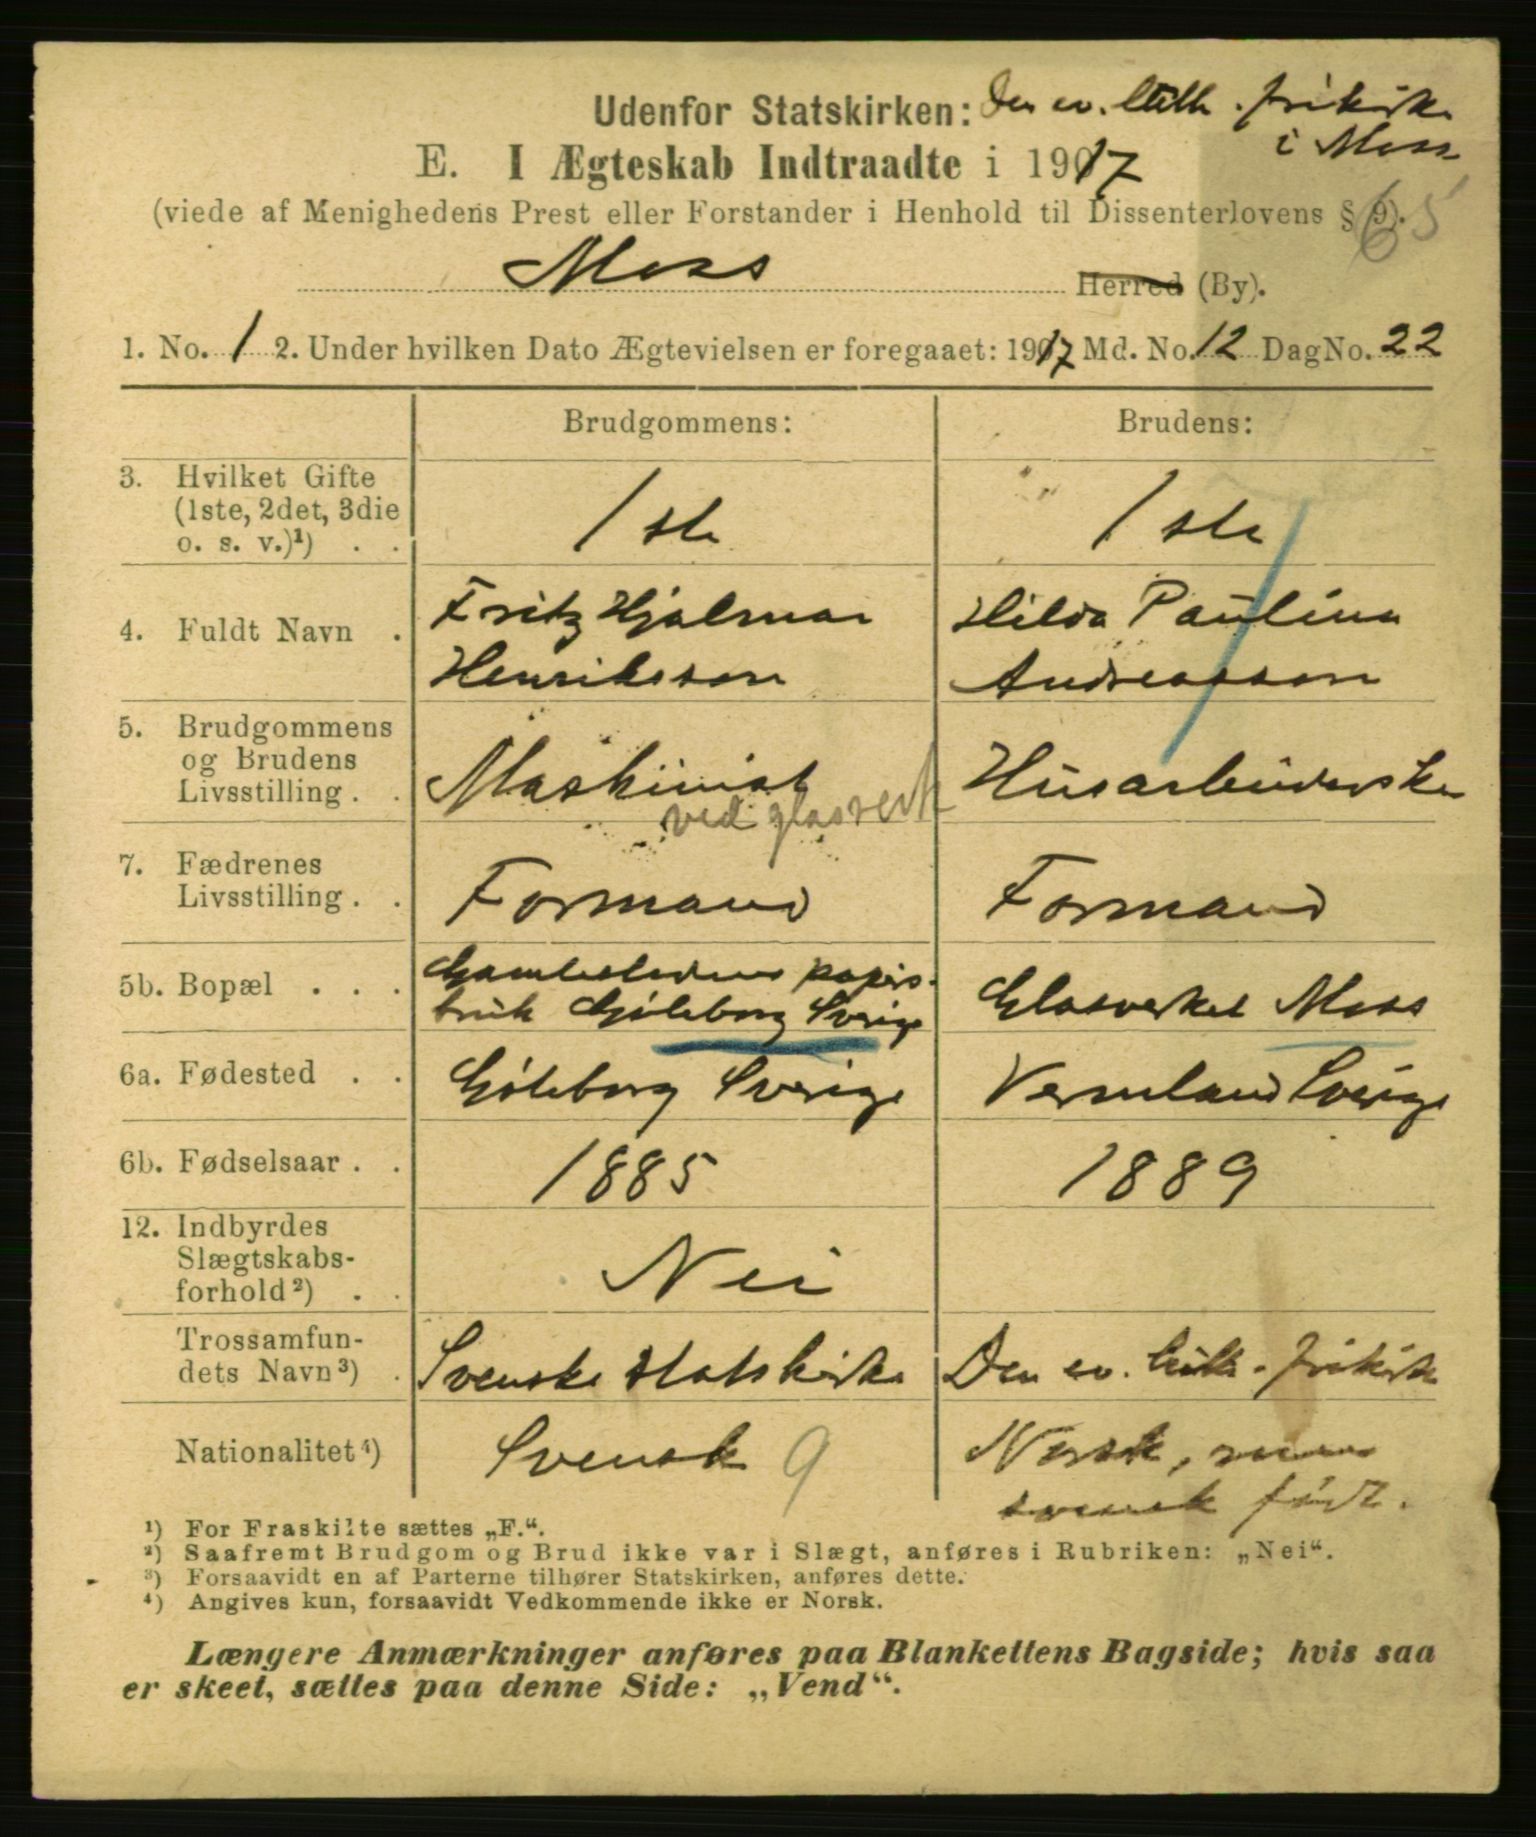 Udenfor Statskirken: Den ev. luth. frikirke
i Moss
E. I Ægteskab Indtraadte i 1917
(viede af Menighedens Prest eller Forstander i Henhold til Dissenterlovens § 9).
65
Moss Herred (By).
1. No. 1 2. Under hvilken Dato Ægtevielsen er foregaaet: 1917 Md. No. 12 Dag No. 22
Brudgommens: Brudens:
3. Hvilket Gifte
(1ste, 2det, 3die
o. s. v.)¹) . .
1ste 1ste
4. Fuldt Navn .
Fritz Hjalmar
Henriksson
Hilda Paulina
Andreasson
5. Brudgommens
og Brudens
Livsstilling . .
Maskinist
ved glasverk
Husarbeiderske
7. Fædrenes
Livsstilling . .
Formand Formand
5b. Bopæl . . .
papirs-
bruk Gøteborg Sverige
Glasverket Moss
6a. Fødested . .
Gøteborg Sverige Vermland Sverige
6b. Fødselsaar . .
1885 1889
12. Indbyrdes
Slægtskabs-
forhold²) . .
Nei
Trossamfun-
dets Navn³) .
Svenske statskirke Den ev. luth. frikirke
Nationalitet⁴)
Svensk 9
Norsk, men
svensk født.
¹) For Fraskilte sættes „F.“.
²) Saafremt Brudgom og Brud ikke var i Slægt, anføres i Rubriken: „Nei“.
³) Forsaavidt en af Parterne tilhører Statskirken, anføres dette.
⁴) Angives kun, forsaavidt Vedkommende ikke er Norsk.
Længere Anmærkninger anføres paa Blankettens Bagside; hvis saa
er skeet, sættes paa denne Side: „Vend“.